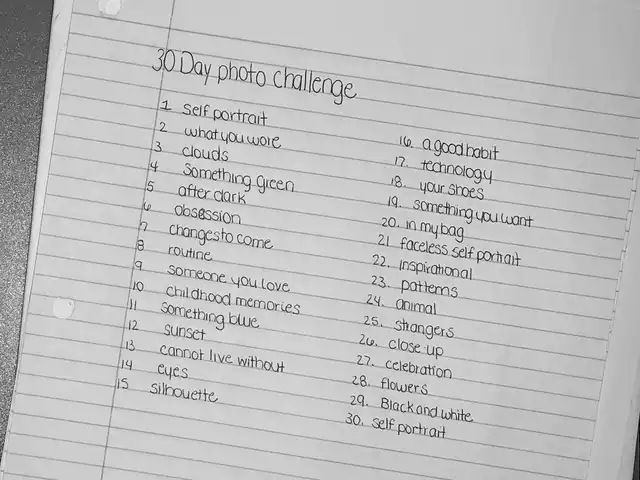 30 Day photo challenge
1 self portrait
2 what you wore
3 clouds
4 Something green
5 after dark
6 obsession
7 changes to come
8 routine
9 someone you love
10 childhood memories
11 something blue
12 sunset
13 cannot live without
14 eyes
15 silhouette
16. a good habit
17. technology
18. your shoes
19. something you want
20. in my bag
21 faceless self portrait
22. inspirational
23. patterns
24. animal
25. strangers
26. close-up
27. celebration
28. flowers
29. Black and white
30. self portrait